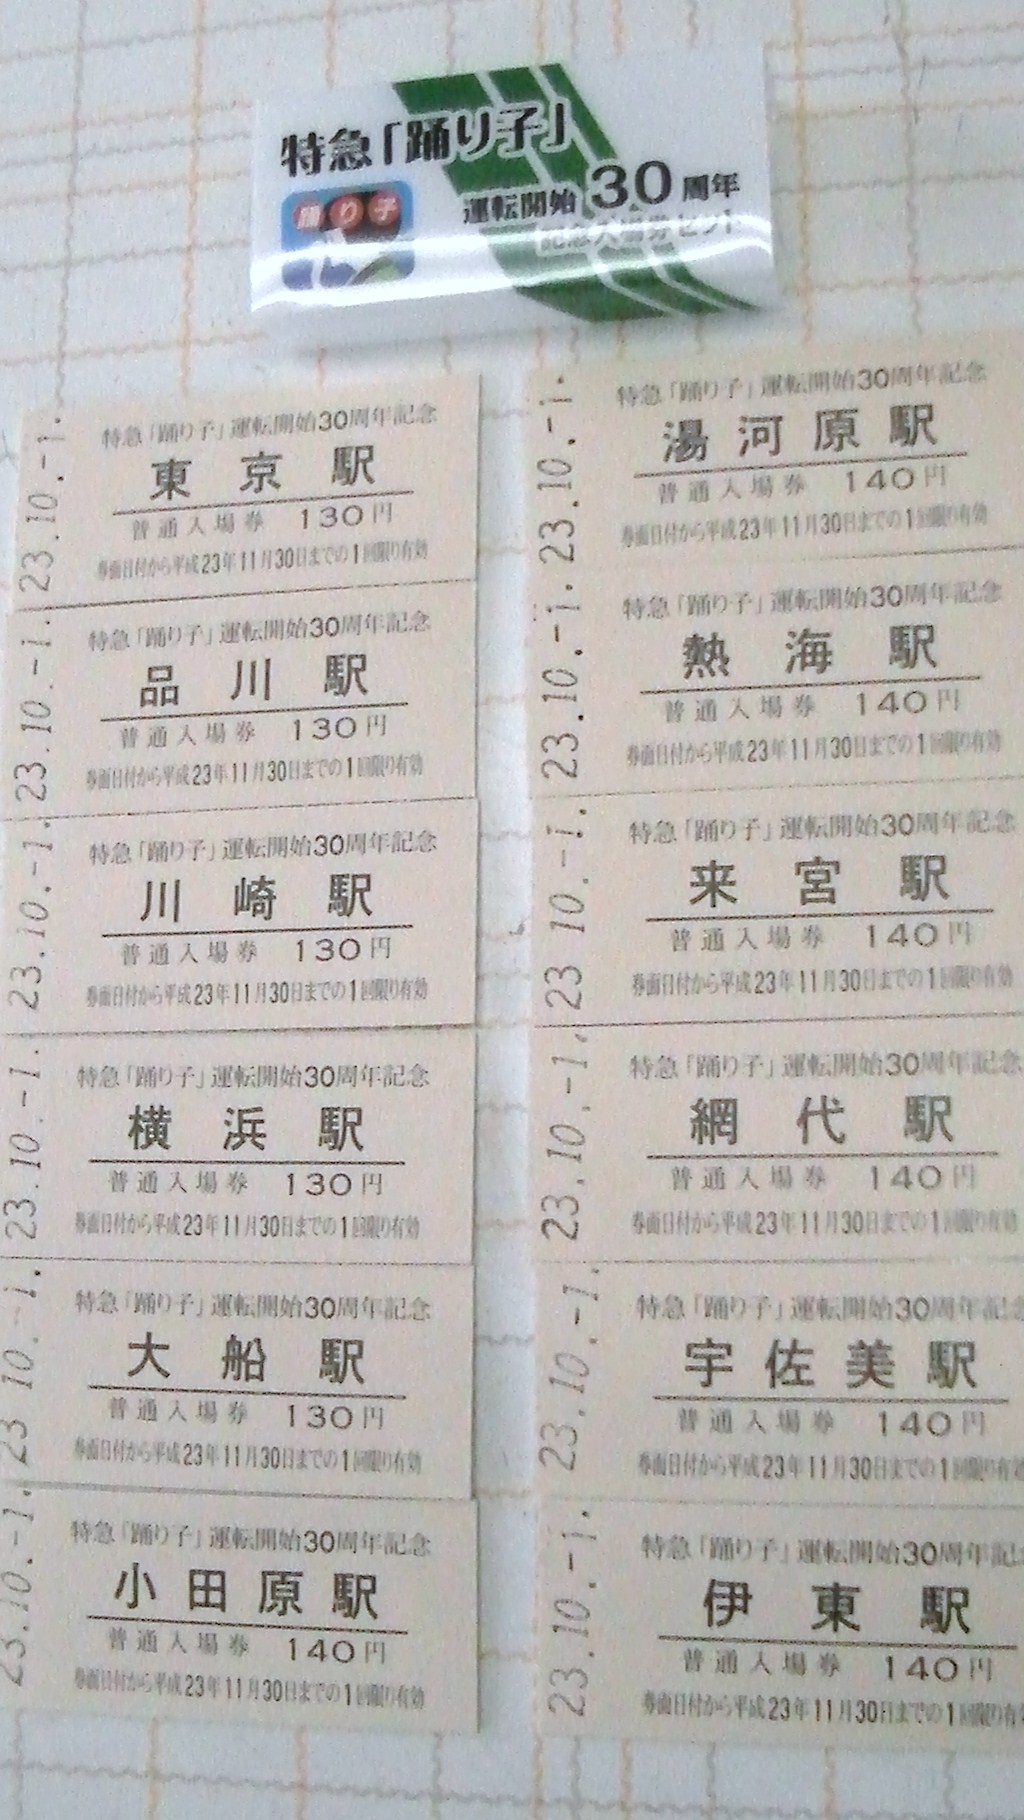 特急「踊り子」
踊り子
運転開始30周年
記念入場券セット
23.10.-1.
特急「踊り子」運転開始30周年記念
東京駅
普通入場券 130円
券面日付から平成23年11月30日までの1回限り有効
23.10.-1.
特急「踊り子」運転開始30周年記念
品川駅
普通入場券 130円
券面日付から平成23年11月30日までの1回限り有効
23.10.-1.
特急「踊り子」運転開始30周年記念
川崎駅
普通入場券 130円
券面日付から平成23年11月30日までの1回限り有効
23.10.-1.
特急「踊り子」運転開始30周年記念
横浜駅
普通入場券 130円
券面日付から平成23年11月30日までの1回限り有効
23 10.-1.
特急「踊り子」運転開始30周年記念
大船駅
普通入場券 130円
券面日付から平成23年11月30日までの1回限り有効
23.10.-1.
特急「踊り子」運転開始30周年記念
小田原駅
普通入場券 140円
券面日付から平成23年11月30日までの1回限り有効
23.10.-1.
特急「踊り子」運転開始30周年記念
湯河原駅
普通入場券 140円
券面日付から平成23年11月30日までの1回限り有効
23.10.-1.
特急「踊り子」運転開始30周年記念
熱海駅
普通入場券 140円
券面日付から平成23年11月30日までの1回限り有効
23 10.-1.
特急「踊り子」運転開始30周年記念
来宮駅
普通入場券 140円
券面日付から平成23年11月30日までの1回限り有効
23.10.-1.
特急「踊り子」運転開始30周年記念
網代駅
普通入場券 140円
券面日付から平成23年11月30日までの1回限り有効
23.10.-1.
特急「踊り子」運転開始30周年記
宇佐美駅
普通入場券 140円
券面日付から平成23年11月30日までの1回限り有
23.10.-1.
特急「踊り子」運転開始30周年記
伊東駅
普通入場券 140円
券面日付から平成23年11月30日までの1回限り有